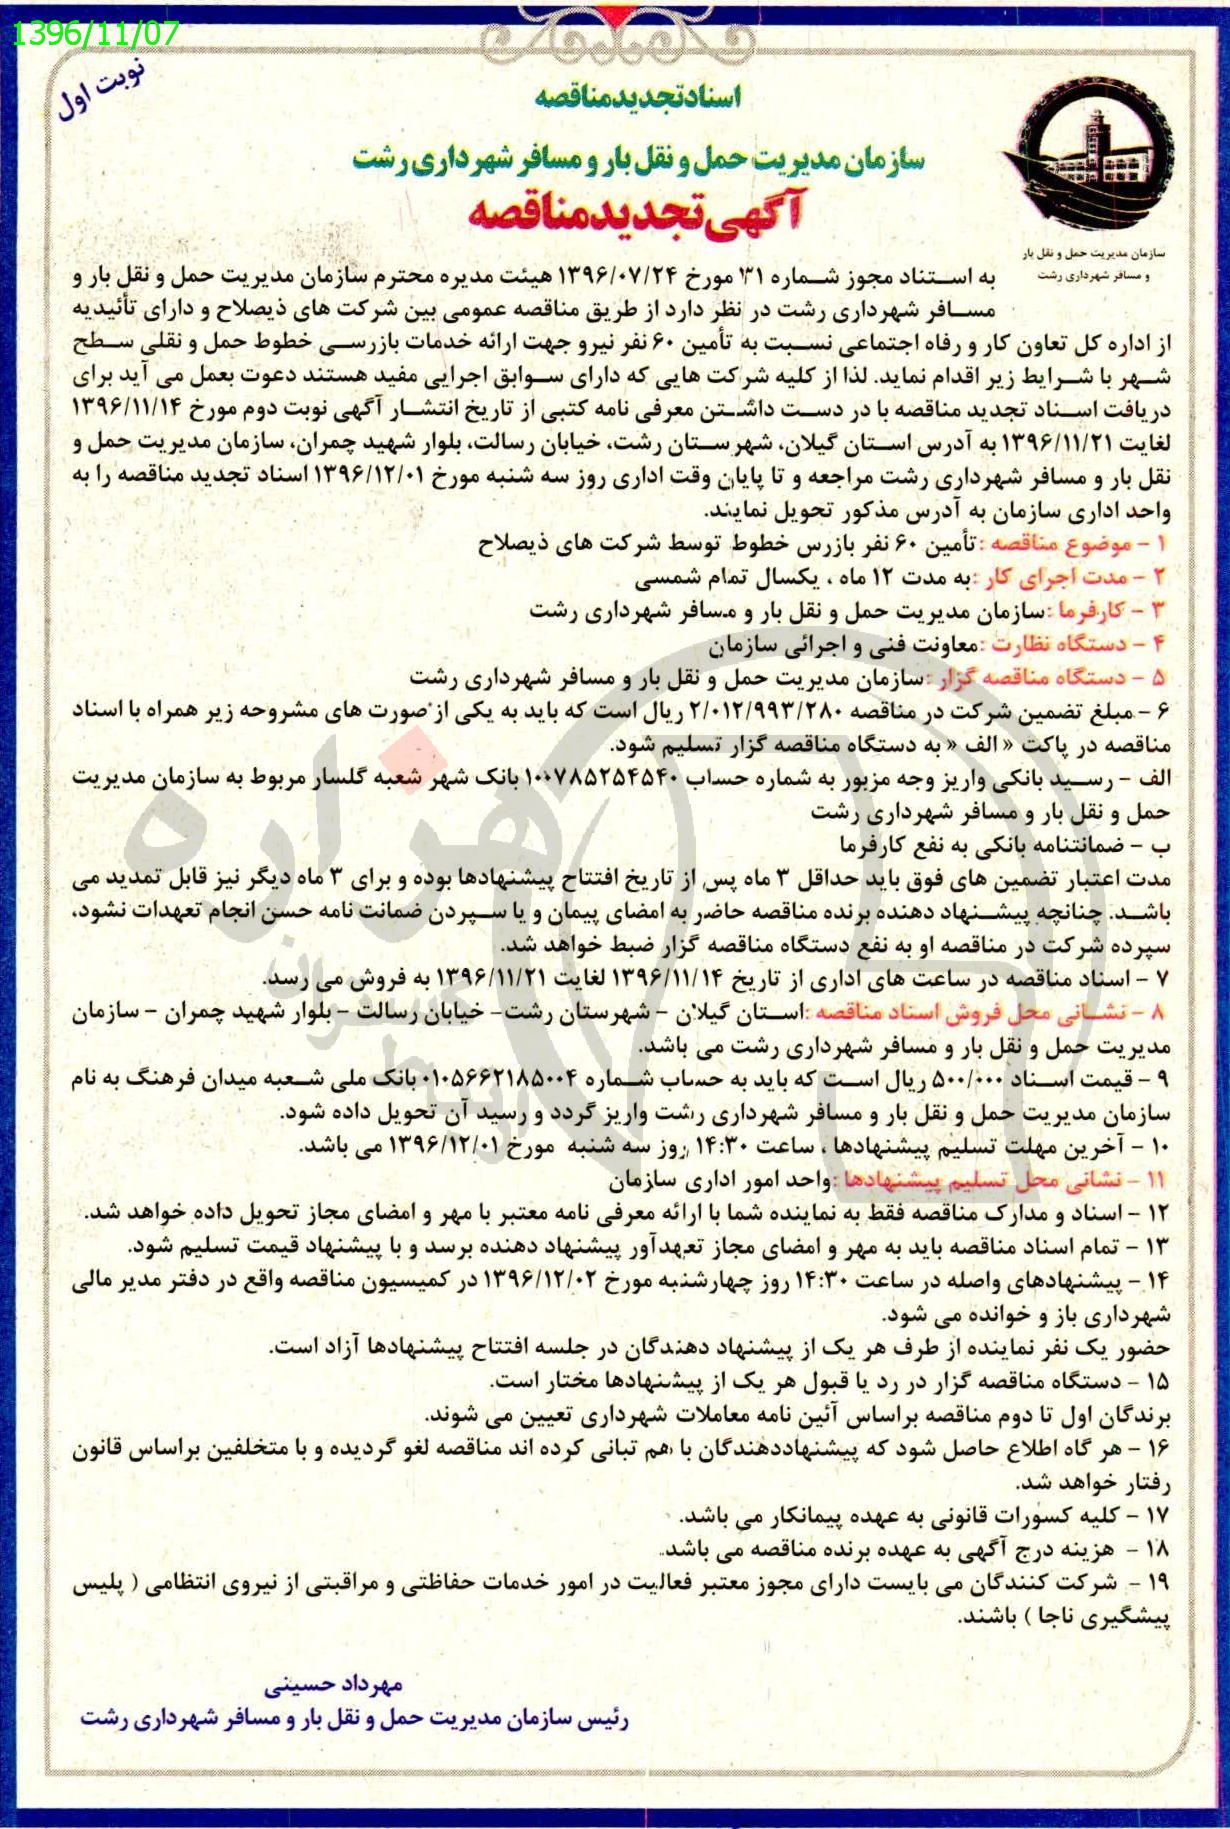 1396/11/07
نوبت اول
اسناد تجدید مناقصه
سازمان مدیریت حمل و نقل بار و مسافر شهرداری رشت
آگهی تجدید مناقصه
سازمان مدیریت حمل و نقل بار
و مسافر شهرداری رشت
به استناد مجوز شماره ۱۳۱ مورخ ۱۳۹۶/۰۷/۲۴ هیئت مدیره محترم سازمان مدیریت حمل و نقل بار و
مسافر شهرداری رشت در نظر دارد از طریق مناقصه عمومی بین شرکت های ذیصلاح و دارای تأئیدیه
از اداره کل تعاون کار و رفاه اجتماعی نسبت به تأمین ۶۰ نفر نیرو جهت ارائه خدمات بازرسی خطوط حمل و نقلی سطح
شهر با شرایط زیر اقدام نماید. لذا از کلیه شرکت هایی که دارای سوابق اجرایی مفید هستند دعوت بعمل می آید برای
دریافت اسناد تجدید مناقصه با در دست داشتن معرفی نامه کتبی از تاریخ انتشار آگهی نوبت دوم مورخ ۱۳۹۶/۱۱/۱۴
لغایت ۱۳۹۶/۱۱/۲۱ به آدرس استان گیلان، شهرستان رشت، خیابان رسالت، بلوار شهید چمران، سازمان مدیریت حمل و
نقل بار و مسافر شهرداری رشت مراجعه و تا پایان وقت اداری روز سه شنبه مورخ ۱۳۹۶/۱۲/۰۱ اسناد تجدید مناقصه را به
واحد اداری سازمان به آدرس مذکور تحویل نمایند.
۱ - موضوع مناقصه :تأمین ۶۰ نفر بازرس خطوط توسط شرکت های ذیصلاح
۲ - مدت اجرای کار :به مدت ۱۲ ماه ، یکسال تمام شمسی
۳ - کارفرما :سازمان مدیریت حمل و نقل بار و مسافر شهرداری رشت
۴ - دستگاه نظارت :معاونت فنی و اجرائی سازمان
۵ - دستگاه مناقصه گزار :سازمان مدیریت حمل و نقل بار و مسافر شهرداری رشت
۶ - مبلغ تضمین شرکت در مناقصه ۲/۰۱۲/۹۹۳/۲۸۰ ریال است که باید به یکی از صورت های مشروحه زیر همراه با اسناد
مناقصه در پاکت « الف « به دستگاه مناقصه گزار تسلیم شود.
الف - رسید بانکی واریز وجه مزبور به شماره حساب ۱۰۰۷۸۵۲۵۴۵۴۰ بانک شهر شعبه گلسار مربوط به سازمان مدیریت
حمل و نقل بار و مسافر شهرداری رشت
ب - ضمانتنامه بانکی به نفع کارفرما
مدت اعتبار تضمین های فوق باید حداقل ۳ ماه پس از تاریخ افتتاح پیشنهادها بوده و برای ۳ ماه دیگر نیز قابل تمدید می
باشد. چنانچه پیشنهاد دهنده برنده مناقصه حاضر به امضای پیمان و یا سپردن ضمانت نامه حسن انجام تعهدات نشود،
سپرده شرکت در مناقصه او به نفع دستگاه مناقصه گزار ضبط خواهد شد.
۷ - اسناد مناقصه در ساعت های اداری از تاریخ ۱۳۹۶/۱۱/۱۴ لغایت ۱۳۹۶/۱۱/۲۱ به فروش می رسد.
۸ - نشانی محل فروش اسناد مناقصه :استان گیلان - شهرستان رشت- خیابان رسالت - بلوار شهید چمران - سازمان
مدیریت حمل و نقل بار و مسافر شهرداری رشت می باشد.
۹ - قیمت اسناد ۵۰۰/۰۰۰ ریال است که باید به حساب شماره ۰۱۰۵۶۶۲۱۸۵۰۰۴ بانک ملی شعبه میدان فرهنگ به نام
سازمان مدیریت حمل و نقل بار و مسافر شهرداری رشت واریز گردد و رسید آن تحویل داده شود.
۱۰ - آخرین مهلت تسلیم پیشنهادها ، ساعت ۱۴:۳۰ روز سه شنبه مورخ ۱۳۹۶/۱۲/۰۱ می باشد.
۱۱ - نشانی محل تسلیم پیشنهادها :واحد امور اداری سازمان
۱۲ - اسناد و مدارک مناقصه فقط به نماینده شما با ارائه معرفی نامه معتبر با مهر و امضای مجاز تحویل داده خواهد شد.
۱۳ - تمام اسناد مناقصه باید به مهر و امضای مجاز تعهدآور پیشنهاد دهنده برسد و با پیشنهاد قیمت تسلیم شود.
۱۴ - پیشنهادهای واصله در ساعت ۱۴:۳۰ روز چهارشنبه مورخ ۱۳۹۶/۱۲/۰۲ در کمیسیون مناقصه واقع در دفتر مدیر مالی
شهرداری باز و خوانده می شود.
حضور یک نفر نماینده از طرف هر یک از پیشنهاد دهندگان در جلسه افتتاح پیشنهادها آزاد است.
۱۵ - دستگاه مناقصه گزار در رد یا قبول هر یک از پیشنهادها مختار است.
برندگان اول تا دوم مناقصه براساس آئین نامه معاملات شهرداری تعیین می شوند.
۱۶ - هر گاه اطلاع حاصل شود که پیشنهاددهندگان با هم تبانی کرده اند مناقصه لغو گردیده و با متخلفین براساس قانون
رفتار خواهد شد.
۱۷ - کلیه کسورات قانونی به عهده پیمانکار می باشد.
۱۸ - هزینه درج آگهی به عهده برنده مناقصه می باشد.
۱۹ - شرکت کنندگان می بایست دارای مجوز معتبر فعالیت در امور خدمات حفاظتی و مراقبتی از نیروی انتظامی ( پلیس
پیشگیری ناجا ) باشند.
مهرداد حسینی
رئیس سازمان مدیریت حمل و نقل بار و مسافر شهرداری رشت